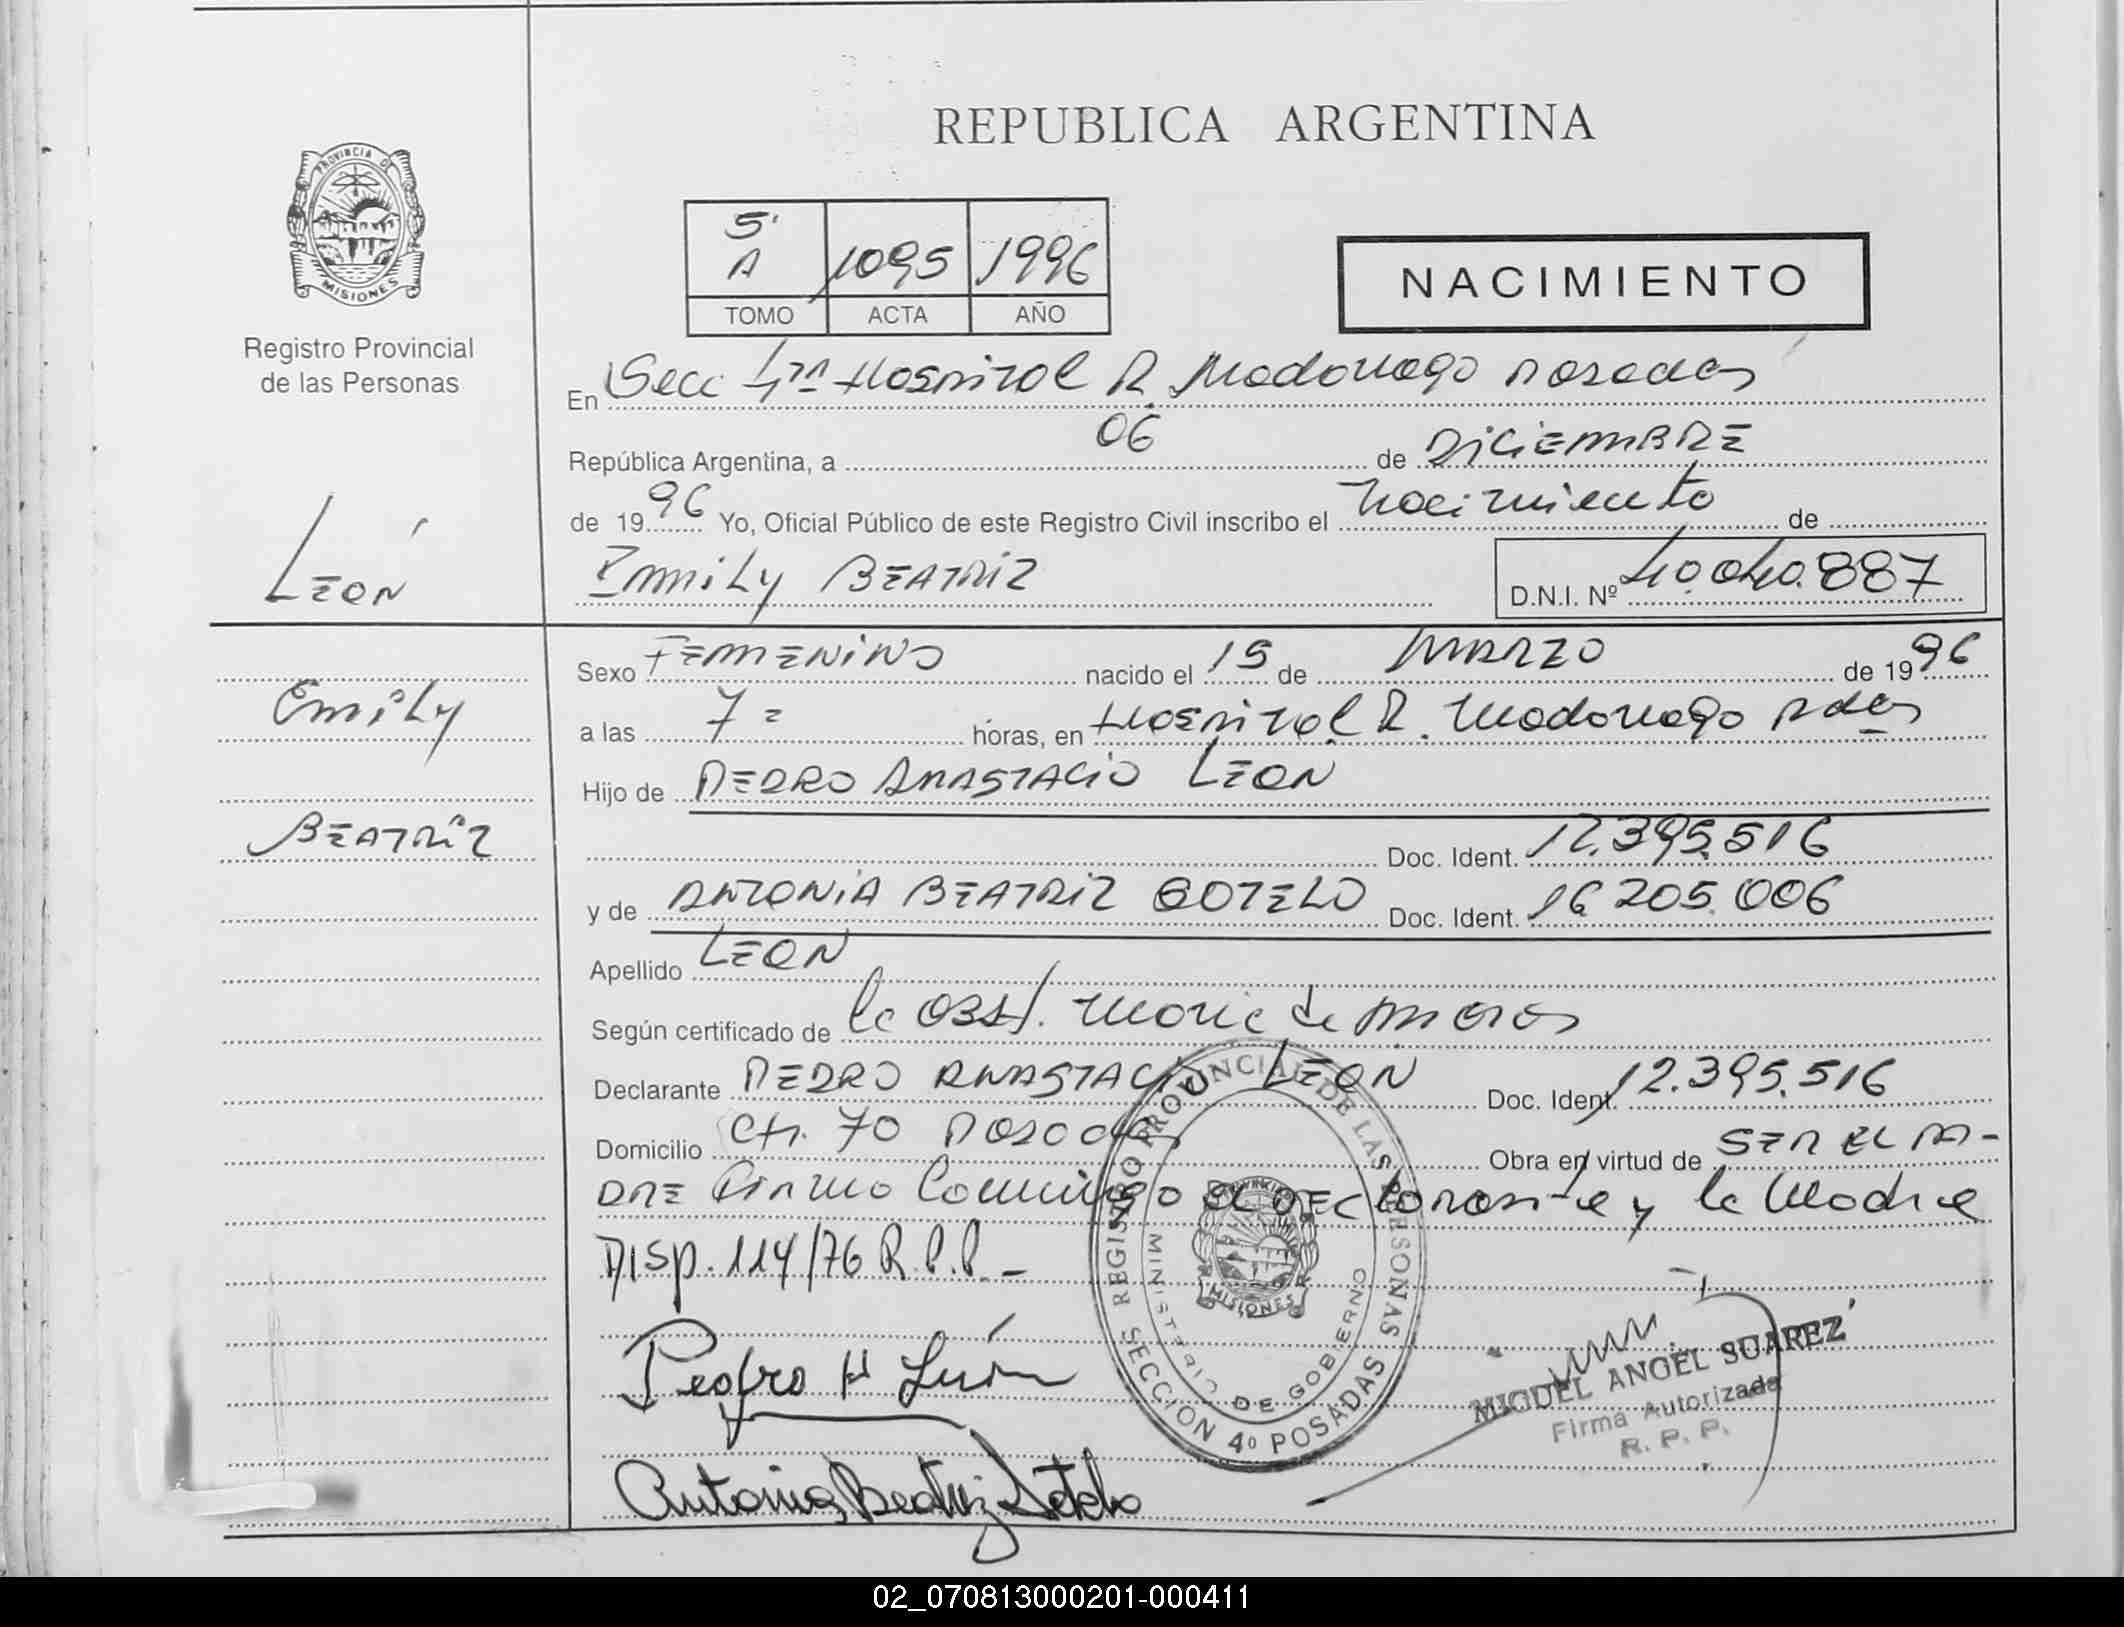 REPUBLICA ARGENTINA
PROVINCIA DE
MISIONES
Registro Provincial
de las Personas
5'
A 1095 1996
TOMO ACTA AÑO
NACIMIENTO
En Secc 4ta Hospital R. Madariaga Posadas
República Argentina, a 06 de DICIEMBRE
de 1996 Yo, Oficial Público de este Registro Civil inscribo el Nacimiento de
Emily BEATRIZ
D.N.I. Nº 40.040.887
LEÓN
Emily
BEATRIZ
Sexo FEMENINO nacido el 15 de MARZO de 1996
a las 7= horas, en Hospital R. Madariaga Pdas
Hijo de PEDRO ANASTACIO LEON
Doc. Ident. 12.395.516
y de ANTONIA BEATRIZ SOTELO Doc. Ident. 16.205.006
Apellido LEON
Según certificado de la Obst. Maria de
Declarante PEDRO ANASTACIO LEON Doc. Ident. 12.395.516
Domicilio Ch. 70 Posadas Obra en virtud de SER EL PA-
DRE Firma Conmigo el DEClarante y la Madre
DISP. 114/76 R.P.P.-
Pedro A León
Antonia Beatriz Sotelo
REGISTRO PROVINCIAL DE LAS PERSONAS
MINISTERIO DE GOBIERNO
MISIONES
SECCION 4º POSADAS
MIGUEL ANGEL SUAREZ
Firma Autorizada
R. P. P.
02_070813000201-000411